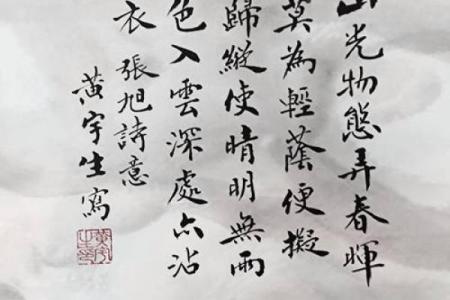 山光物態弄春暉
莫為輕蔭便擬
歸縱使晴明無雨
色入雲深處亦沾
衣 張旭詩意
黃宇生寫